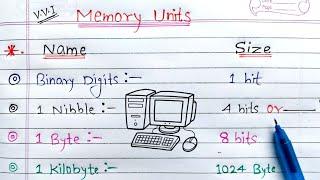 V.V.I Memory Units
*. Name Size
Binary Digits :- 1 bit
1 Nibble :- 4 bits or
1 Byte :- 8 bits
1 Kilobyte :- 1024 Byte